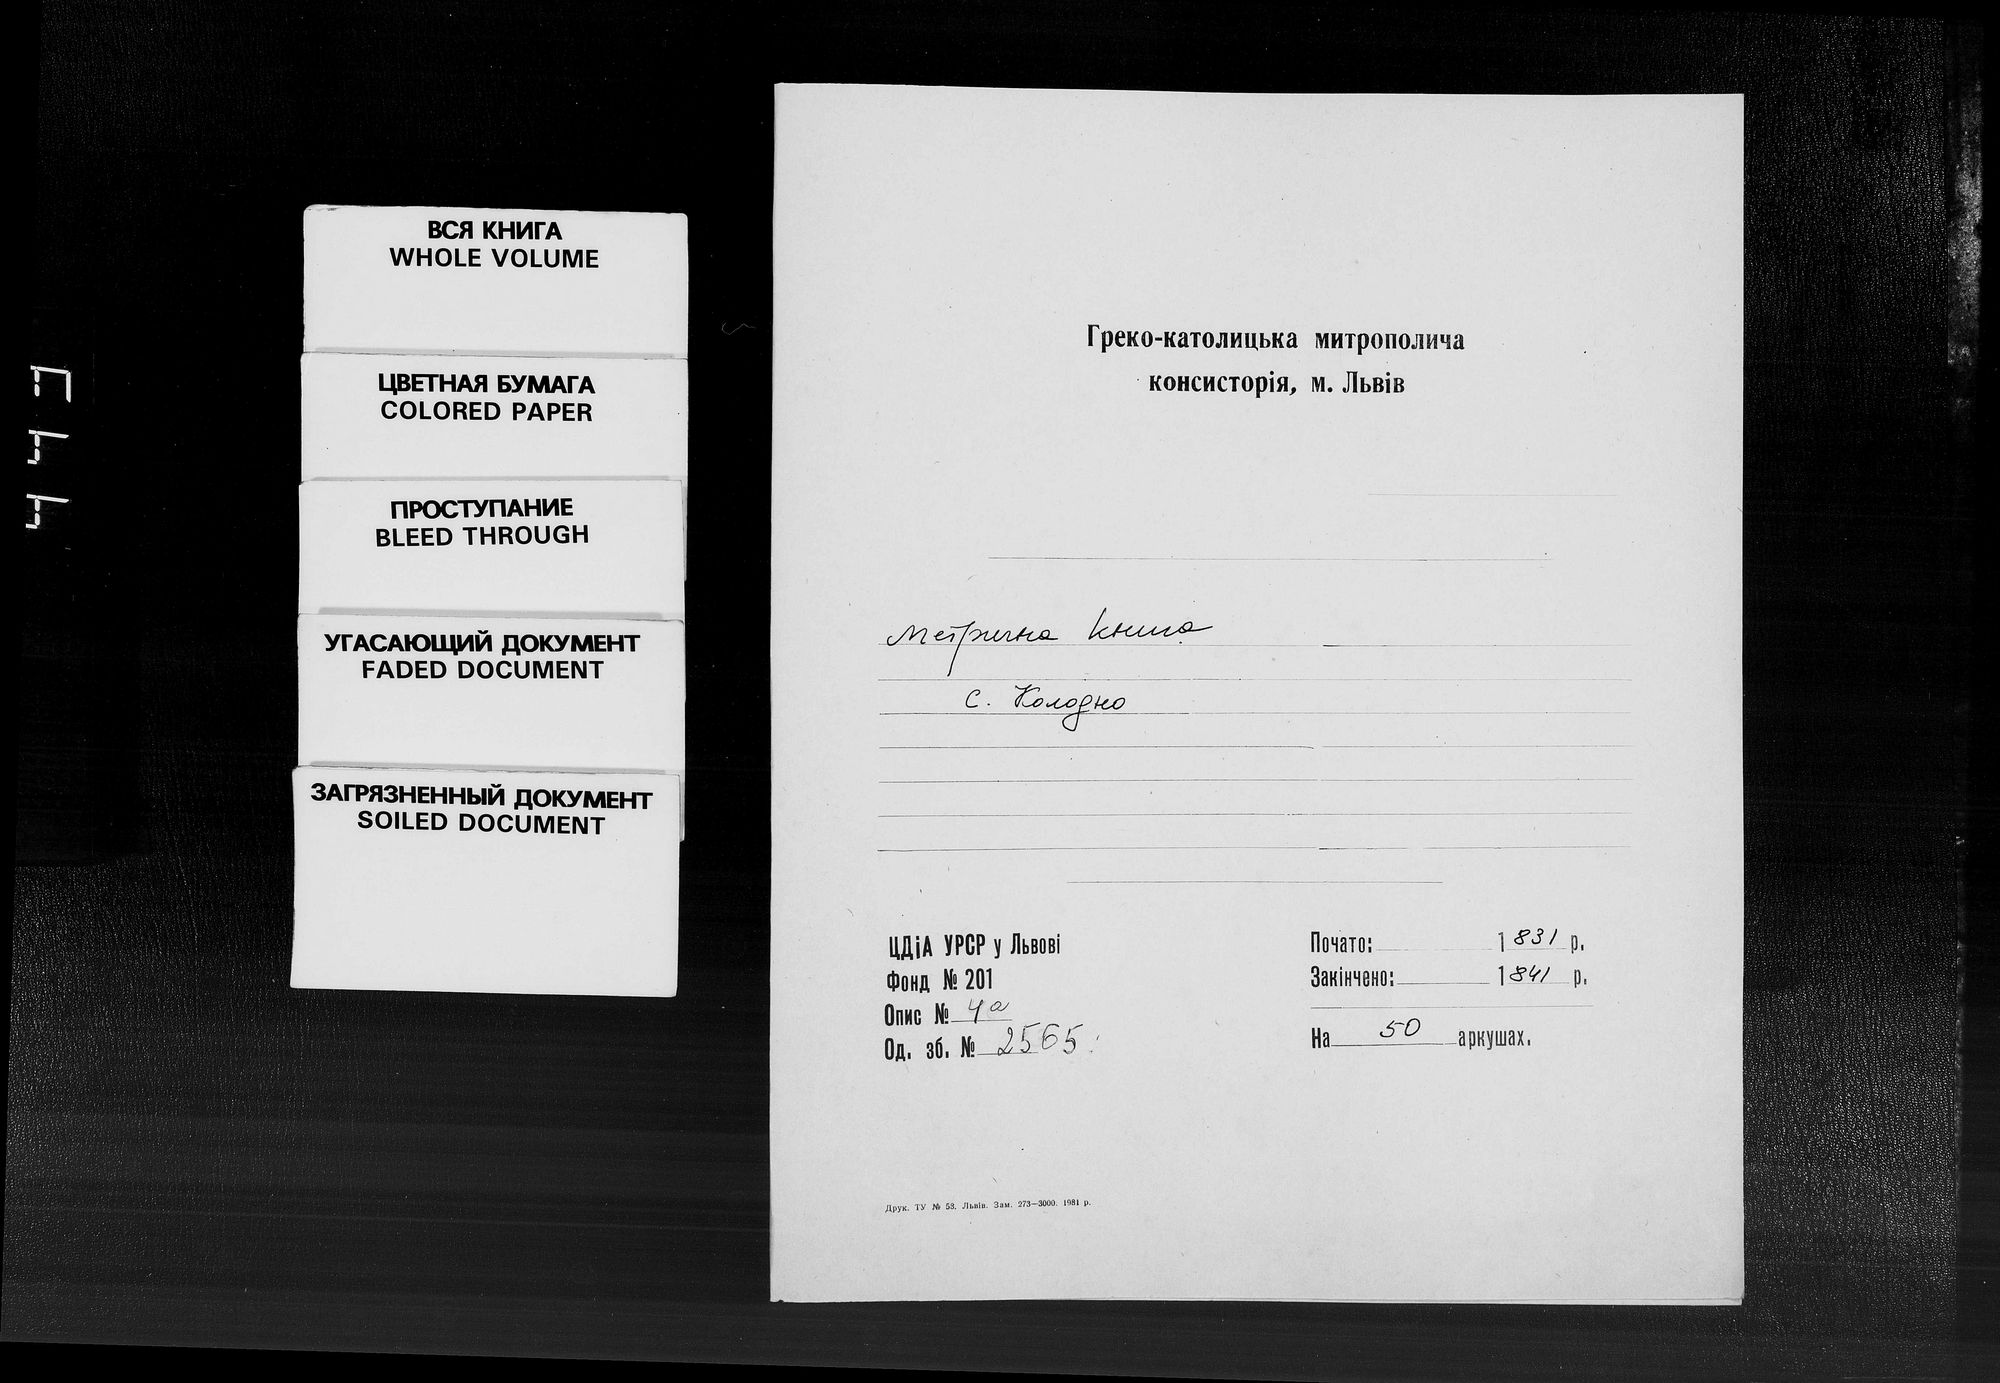 ВСЯ КНИГА
WHOLE VOLUME
ЦВЕТНАЯ БУМАГА
COLORED PAPER
ПРОСТУПАНИЕ
BLEED THROUGH
УГАСАЮЩИЙ ДОКУМЕНТ
FADED DOCUMENT
ЗАГРЯЗНЕННЫЙ ДОКУМЕНТ
SOILED DOCUMENT
Греко-католицька митрополича
консисторія, м. Львів
Метрична книга
с. Колодно
ЦДіА УРСР у Львові
Фонд № 201
Опис № 4а
Од. зб. № 2565
Почато: 1831 р.
Закінчено: 1841 р.
На 50 аркушах.
Друк. ТУ № 58. Львів. Зам. 273—3000. 1981 р.